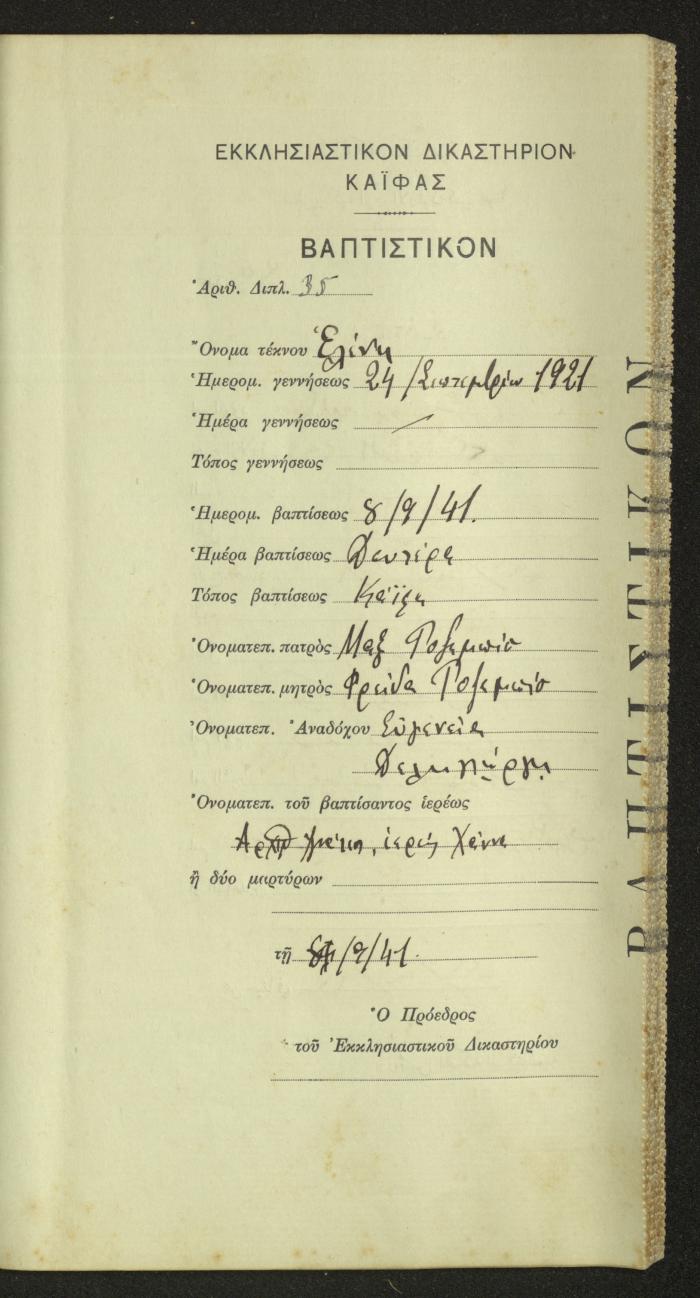 ΕΚΚΛΗΣΙΑΣΤΙΚΟΝ ΔΙΚΑΣΤΗΡΙΟΝ
ΚΑΪΦΑΣ
ΒΑΠΤΙΣΤΙΚΟΝ
Ἀριθ. Διπλ. 35
Ὄνομα τέκνου Ἑλένη
Ἡμερομ. γεννήσεως 24 / Σεπτεμβρίου 1921
Ἡμέρα γεννήσεως /
Τόπος γεννήσεως
Ἡμερομ. βαπτίσεως 8/9/41.
Ἡμέρα βαπτίσεως Δευτέρα
Τόπος βαπτίσεως Καϊφα
Ὀνοματεπ. πατρὸς Μαξ
Ὀνοματεπ. μητρὸς Φρειδα
Ὀνοματεπ. Ἀναδόχου Εὐγενεία
Ὀνοματεπ. τοῦ βαπτίσαντος ἱερέως
ἱερεὺς Χάννα
ἢ δύο μαρτύρων
τῇ /9/41.
Ὁ Πρόεδρος
τοῦ Ἐκκλησιαστικοῦ Δικαστηρίου
ΒΑΠΤΙΣΤΙΚΩΝ